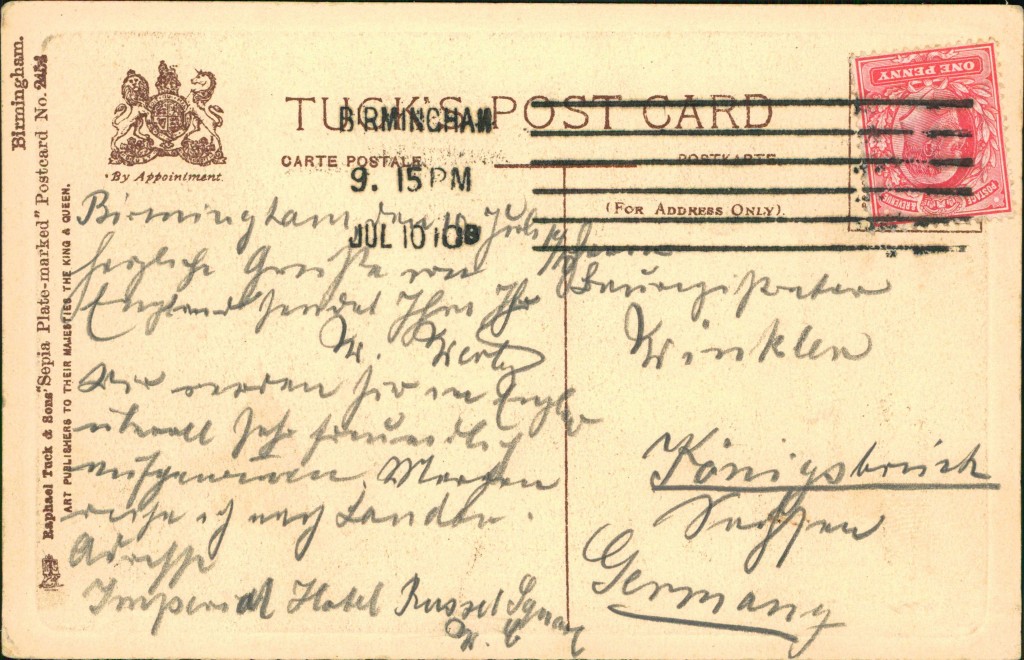 Birmingham.
Raphael Tuck & Sons' "Sepia Plate-marked" Postcard No. 2454
ART PUBLISHERS TO THEIR MAJESTIES THE KING & QUEEN.
By Appointment.
TUCK'S POST CARD
CARTE POSTALE POSTKARTE
(FOR ADDRESS ONLY).
BIRMINGHAM
9. 15 PM
JUL 10
ONE PENNY
POSTAGE
Birmingham, den 10 Juli
herzliche Grüße von
England sendet Ihnen Ihr
W.
Wir werden hier in
überall sehr freundlich
aufgenommen. Morgen
reise ich nach London.
Adresse
Imperial Hotel Russel Square
W. C
Herrn
Winkler
Königsbrück
Sachsen
Germany